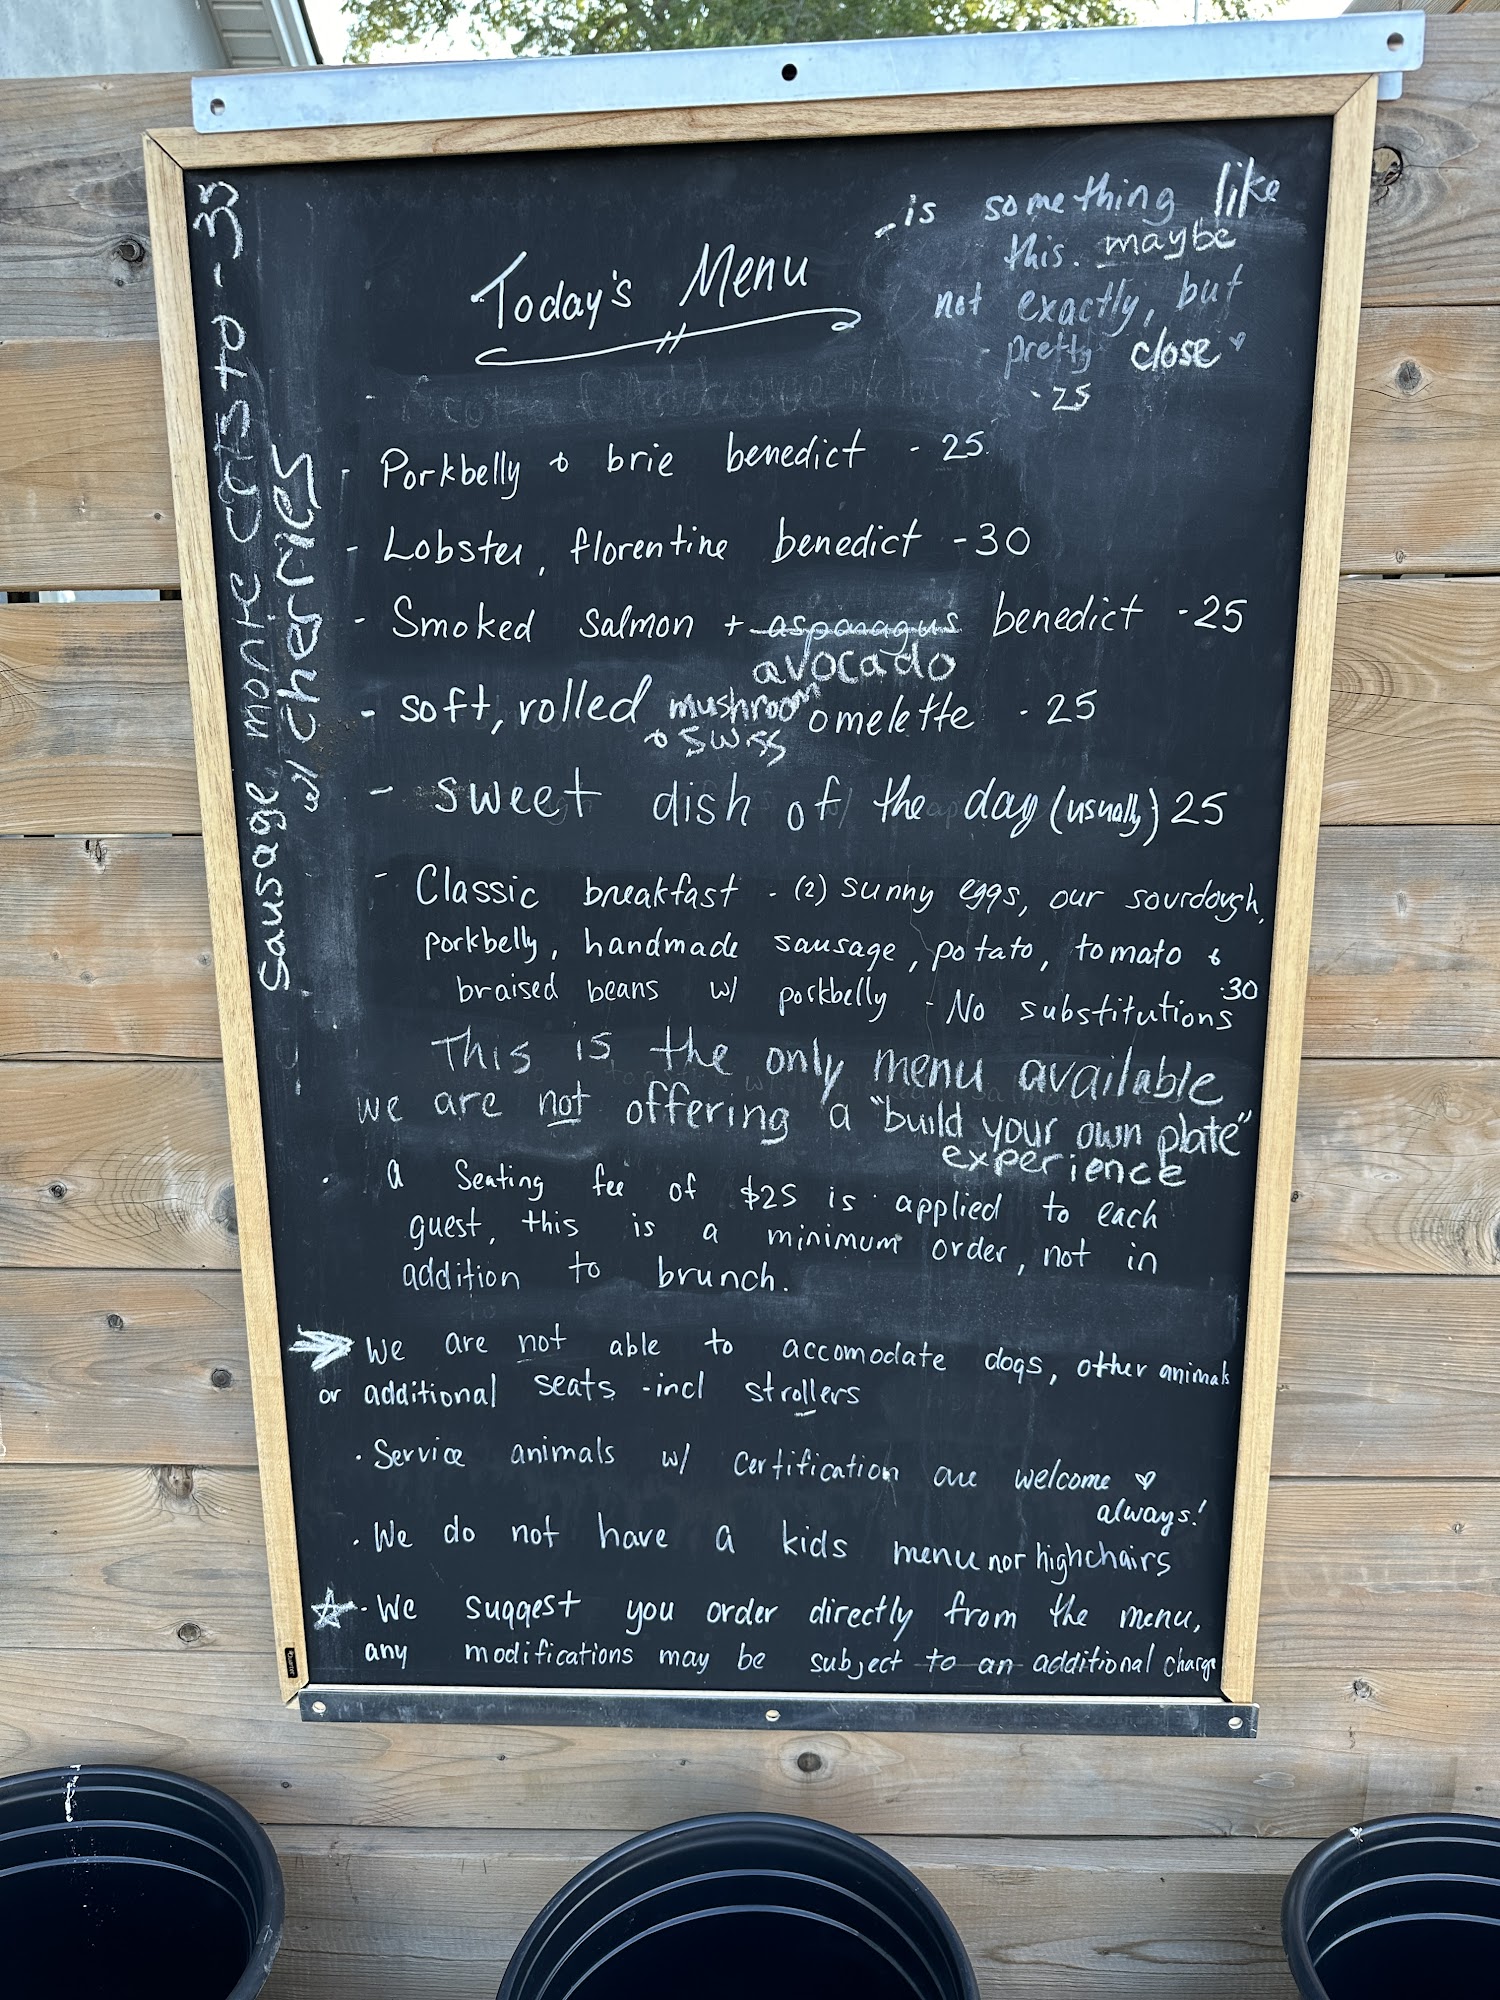 Today's Menu
- is something like
this. maybe
not exactly, but
pretty close ♥
- 25
- Porkbelly & brie benedict - 25
- Lobster, florentine benedict - 30
- Smoked salmon + asparagus benedict - 25
avocado
- soft, rolled mushroom omelette - 25
& swiss
- sweet dish of the day (usually) 25
- Classic breakfast - (2) sunny eggs, our sourdough,
porkbelly, handmade sausage, potato, tomato &
braised beans w/ porkbelly - No substitutions .30
This is the only menu available
we are not offering a "build your own plate"
experience
. a seating fee of $25 is applied to each
guest, this is a minimum order, not in
addition to brunch.
We are not able to accomodate dogs, other animals
or additional seats - incl strollers
. Service animals w/ certification are welcome ♥
always!
. We do not have a kids menu nor highchairs
☆ - We suggest you order directly from the menu,
any modifications may be subject to an additional charge
sausage monte cristo - 35
w/ cherries